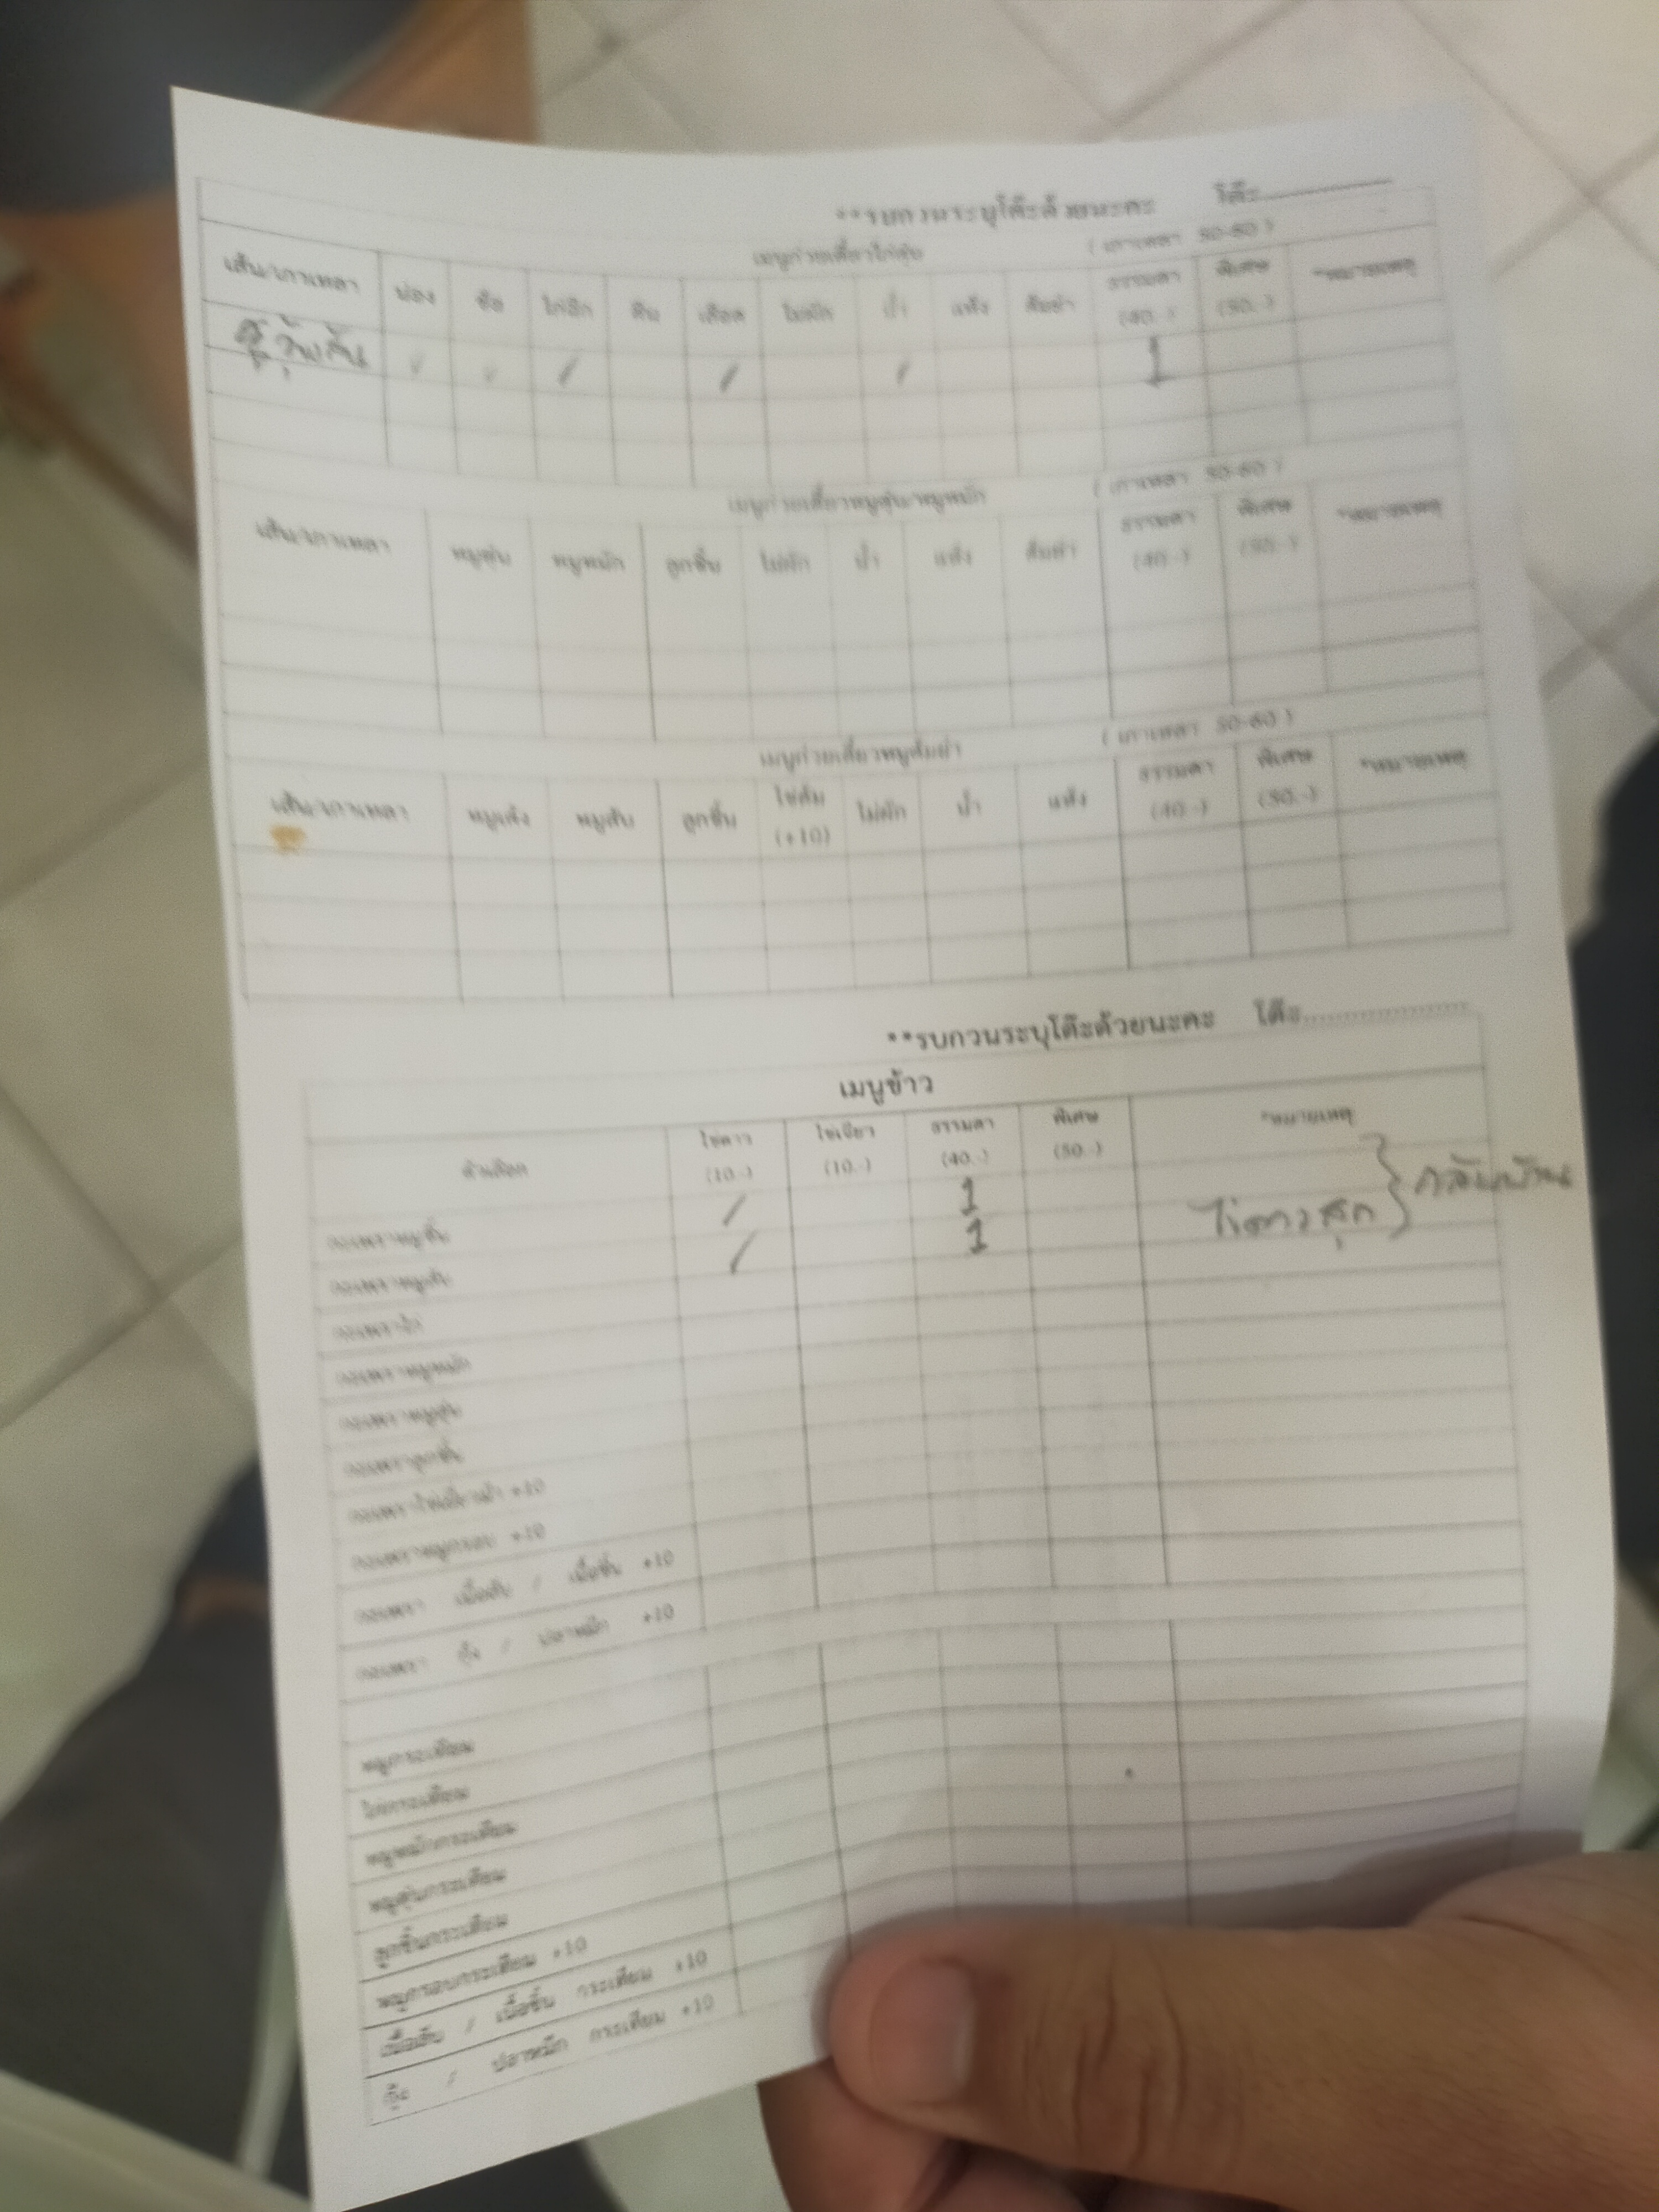 **รบกวนระบุโต๊ะด้วยนะคะ โต๊ะ....................
เมนูก๋วยเตี๋ยวไก่ตุ๋น ( เกาเหลา 50-60 )
เส้น/เกาเหลา น่อง ข้อ ไก่ฉีก ตีน เลือด ไม่ผัก น้ำ แห้ง ต้มยำ ธรรมดา (40.-) พิเศษ (50.-) *หมายเหตุ
วุ้นเส้น / / / 1
เมนูก๋วยเตี๋ยวหมูตุ๋น/หมูหมัก ( เกาเหลา 50-60 )
เส้น/เกาเหลา หมูตุ๋น หมูหมัก ลูกชิ้น ไม่ผัก น้ำ แห้ง ต้มยำ ธรรมดา (40.-) พิเศษ (50.-) *หมายเหตุ
เมนูก๋วยเตี๋ยวหมูต้มยำ ( เกาเหลา 50-60 )
เส้น/เกาเหลา หมูเด้ง หมูสับ ลูกชิ้น ไข่ต้ม (+10) ไม่ผัก น้ำ แห้ง ธรรมดา (40.-) พิเศษ (50.-) *หมายเหตุ
**รบกวนระบุโต๊ะด้วยนะคะ โต๊ะ....................
เมนูข้าว
ตัวเลือก ไข่ดาว (10.-) ไข่เจียว (10.-) ธรรมดา (40.-) พิเศษ (50.-) *หมายเหตุ
กะเพราหมูชิ้น / 1
กะเพราหมูสับ / 1 ไข่ดาวสุก } กลับบ้าน
กะเพราไก่
กะเพราหมูหมัก
กะเพราหมูตุ๋น
กะเพราลูกชิ้น
กะเพราไข่เยี่ยวม้า +10
กะเพราหมูกรอบ +10
กะเพรา เนื้อสับ / เนื้อชิ้น +10
กะเพรา กุ้ง / ปลาหมึก +10
หมูกระเทียม
ไก่กระเทียม
หมูหมักกระเทียม
หมูตุ๋นกระเทียม
ลูกชิ้นกระเทียม
หมูกรอบกระเทียม +10
เนื้อสับ / เนื้อชิ้น กระเทียม +10
กุ้ง / ปลาหมึก กระเทียม +10